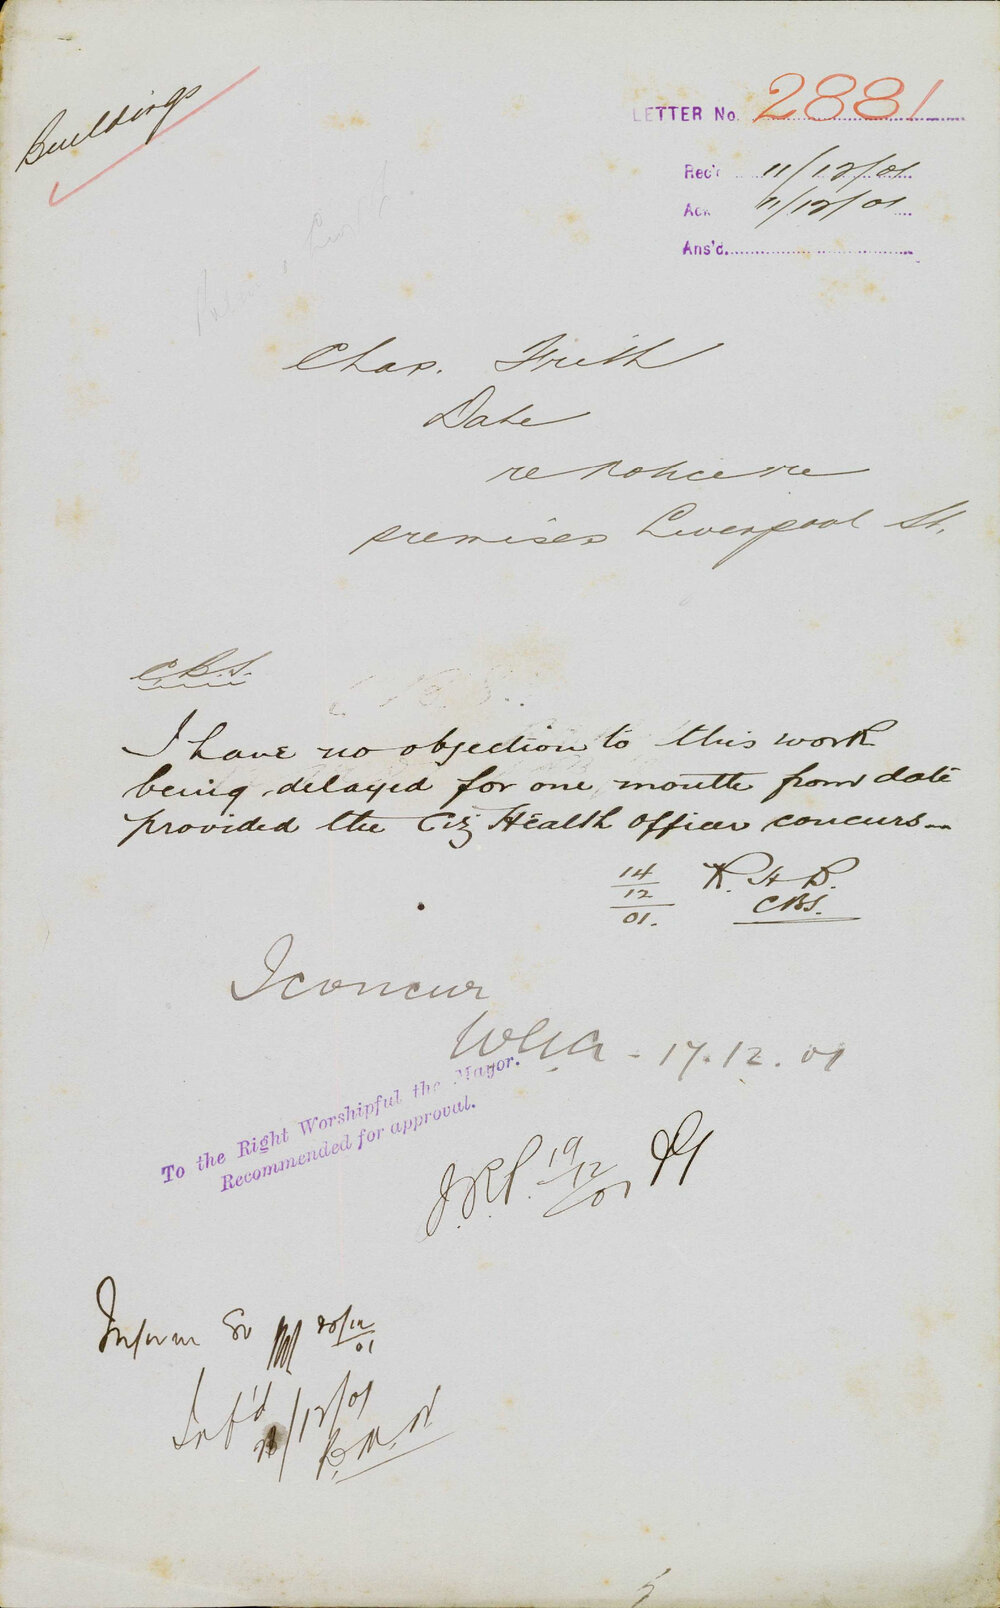 Buildings
LETTER No. 2881
Rec'd 11/12/01
Ack 11/12/01
Ans'd.
Chas. Frith
Date
re notice re
premises Liverpool St.
C.B.S.
I have no objection to this work
being delayed for one month from date
provided the City Health Officer concurs
14/12/01. R.H.B.
CBS.
I concur
17.12.01
To the Right Worshipful the Mayor.
Recommended for approval.
19/12/01
Inform 20/12/01
Inf'd
/12/01